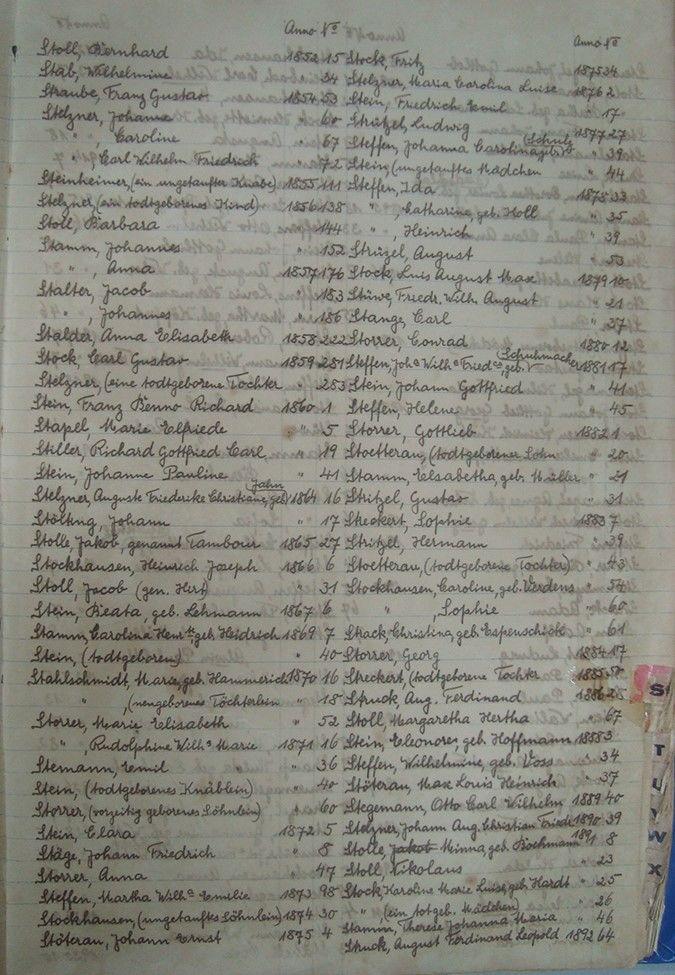 Anno No
Stoll, Bernhard 1852 15
Stab, Wilhelmine " 34
Straube, Franz Gustav 1854 53
Stelzner, Johanne " 60
" , Caroline " 67
" , Carl Wilhelm Friedrich " 72
Steinheimer, (ein ungetaufter Knabe) 1855 111
Stelzner, (ein todtgeborenes Kind) 1856 138
Stoll, Barbara " 144
Stamm, Johannes " 152
" , Anna 1857 176
Stalter, Jacob " 183
" , Johannes " 186
Stalder, Anna Elisabeth 1858 222
Stock, Carl Gustav 1859 281
Stelzner, (eine todtgeborene Tochter " 283
Stein, Franz Benno Richard 1860 1
Stapel Marie Elfriede " 5
Stiller, Richard Gottfried Carl " 19
Stein, Johanne Pauline " 41
Stelzner, Auguste Friederike Christiane, geb. Jahn 1864 16
Stölting, Johann " 17
Stolle, Jakob, genannt Tambour 1865 27
Stockhausen, Heinrich Joseph 1866 6
Stoll, Jacob (gen. Hirt) " 31
Stein, Beata, geb. Lehmann 1867 6
Stamm, Carolina Henr.tte geb. Heidrich 1869 7
Stein, (todtgeboren) " 40
Stahlschmidt, Marie, geb. Hammerich 1870 16
" , (neugeborenes Töchterlein " 18
Storrer, Marie Elisabeth " 52
" , Rudolphine Wilh.e Marie 1871 16
Stemann, Emil " 36
Stein, (todtgeborenes Knäblein) " 40
Storrer, (vorzeitig geborenes Söhnlein) " 60
Stein, Clara 1872 5
Stäge, Johann Friedrich " 8
Storrer, Anna " 47
Steffen, Martha Wilh.e Emilie 1873 98
Stockhausen, (ungetauftes Söhnlein) 1874 30
Stöterau, Johann Ernst 1875 4
Anno No
Stock, Fritz 1875 34
Stelzner, Maria Carolina Luise 1876 2
Stein, Friedrich Emil " 17
Strützel, Ludwig 1877 27
Steffen, Johanna Carolina, geb. Schulz " 39
Stein, (ungetauftes Mädchen " 44
Steffen, Ida 1878 33
" , Catharine, geb. Holl " 35
" , Heinrich " 39
Strügel, August " 53
Stock, Luis August Max 1879 10
Stüwe, Friedr. Wilh. August " 21
Stange, Carl " 37
Storrer, Conrad 1880 12
Steffen, Joh.a Wilh.e Fried.ce geb. Schuhmacher 1881 17
Stein, Johann Gottfried " 41
Steffen, Helene " 45
Storrer, Gottlieb 1882 1
Stoetterau, (todtgeborener Sohn " 20
Stamm, Elsabetha, geb. Müller " 21
Stritzel, Gustav " 31
Streckert, Sophie 1883 7
Stritzel, Hermann " 39
Stoetterau, (todtgeborene Tochter) " 43
Stockhausen, Caroline, geb. Verdens " 54
" , Sophie " 60
Strack, Christina, geb. Espenschied " 61
Storrer, Georg 1884 17
Streckert, (todtgeborene Tochter 1885
Struck, Aug. Ferdinand 1886 28
Stoll, Margaretha Hertha " 67
Stein, Eleonore, geb. Hoffmann 1888 3
Steffen, Wilhelmine, geb. Voss " 34
Stöterau, Max Louis Heinrich " 37
Stegemann, Otto Carl Wilhelm 1889 40
Stelzner Johann Aug. Christian Friedr. 1890 39
Stolle, Jakob Minna, geb. Bochmann 1891 8
Stoll, Nikolaus " 23
Stock, Karoline Marie Luise, geb. Hardt " 25
" (ein totgeb. Mädchen) " 26
Stamm, Therese Johanna Maria " 46
Struck, August Ferdinand Leopold 1892 64
S
T
U
V
W
X